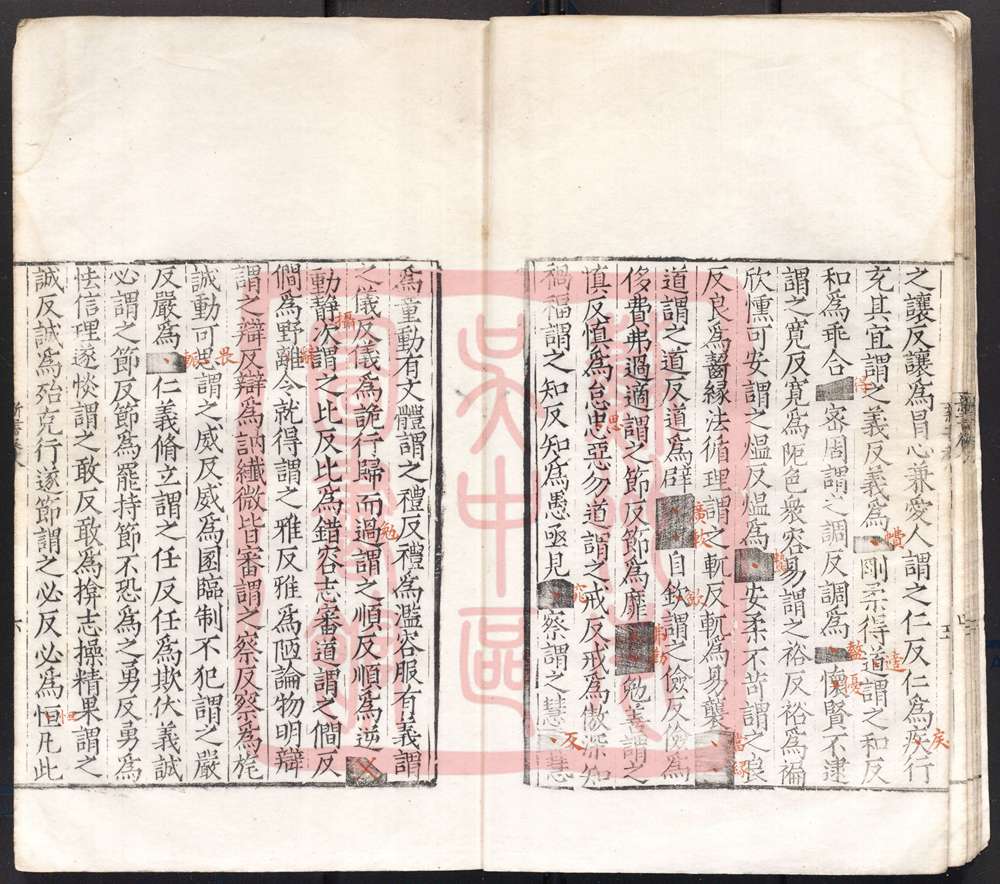 之讓反讓爲冒心兼愛人謂之仁反仁爲疾行
充其宜謂之義反義爲剛柔得道謂之和反
和爲乖合審周謂之調反調爲懮賢不逮
謂之寬反寬爲阨色衆容易謂之裕反裕爲褊
欣憓可安謂之熅反熅爲安柔不苛謂之良
反良爲齧緣法循理謂之軏反軏爲易襲
道謂之道反道爲辟自歛謂之儉反儉爲
侈費弗過適謂之節反節爲靡勉善謂之
慎反慎爲怠忠惡勿道謂之戒反戒爲傲深知
禍福謂之知反知爲愚亟見察謂之慧慧
爲童動有文體謂之禮反禮爲濫容服有義謂
之儀反儀爲詭行歸而過謂之順反順爲逆
動静次謂之比反比爲錯容志審道謂之僩反
僩爲野離令就得謂之雅反雅爲陋論物明辯
謂之辯反辯爲訥纖微皆審謂之察反察爲旄
誠動可謂之威反威爲圂臨制不犯謂之嚴
反嚴爲仁義脩立謂之任反任爲欺伏義誠
必謂之節反節爲罷持節不恐爲之勇反勇爲
怯信理遂惔謂之敢反敢爲揜志操精果謂之
誠反誠爲殆克行遂節謂之必反必爲恒凡此
疾
憒
怪
盭
鷙
六